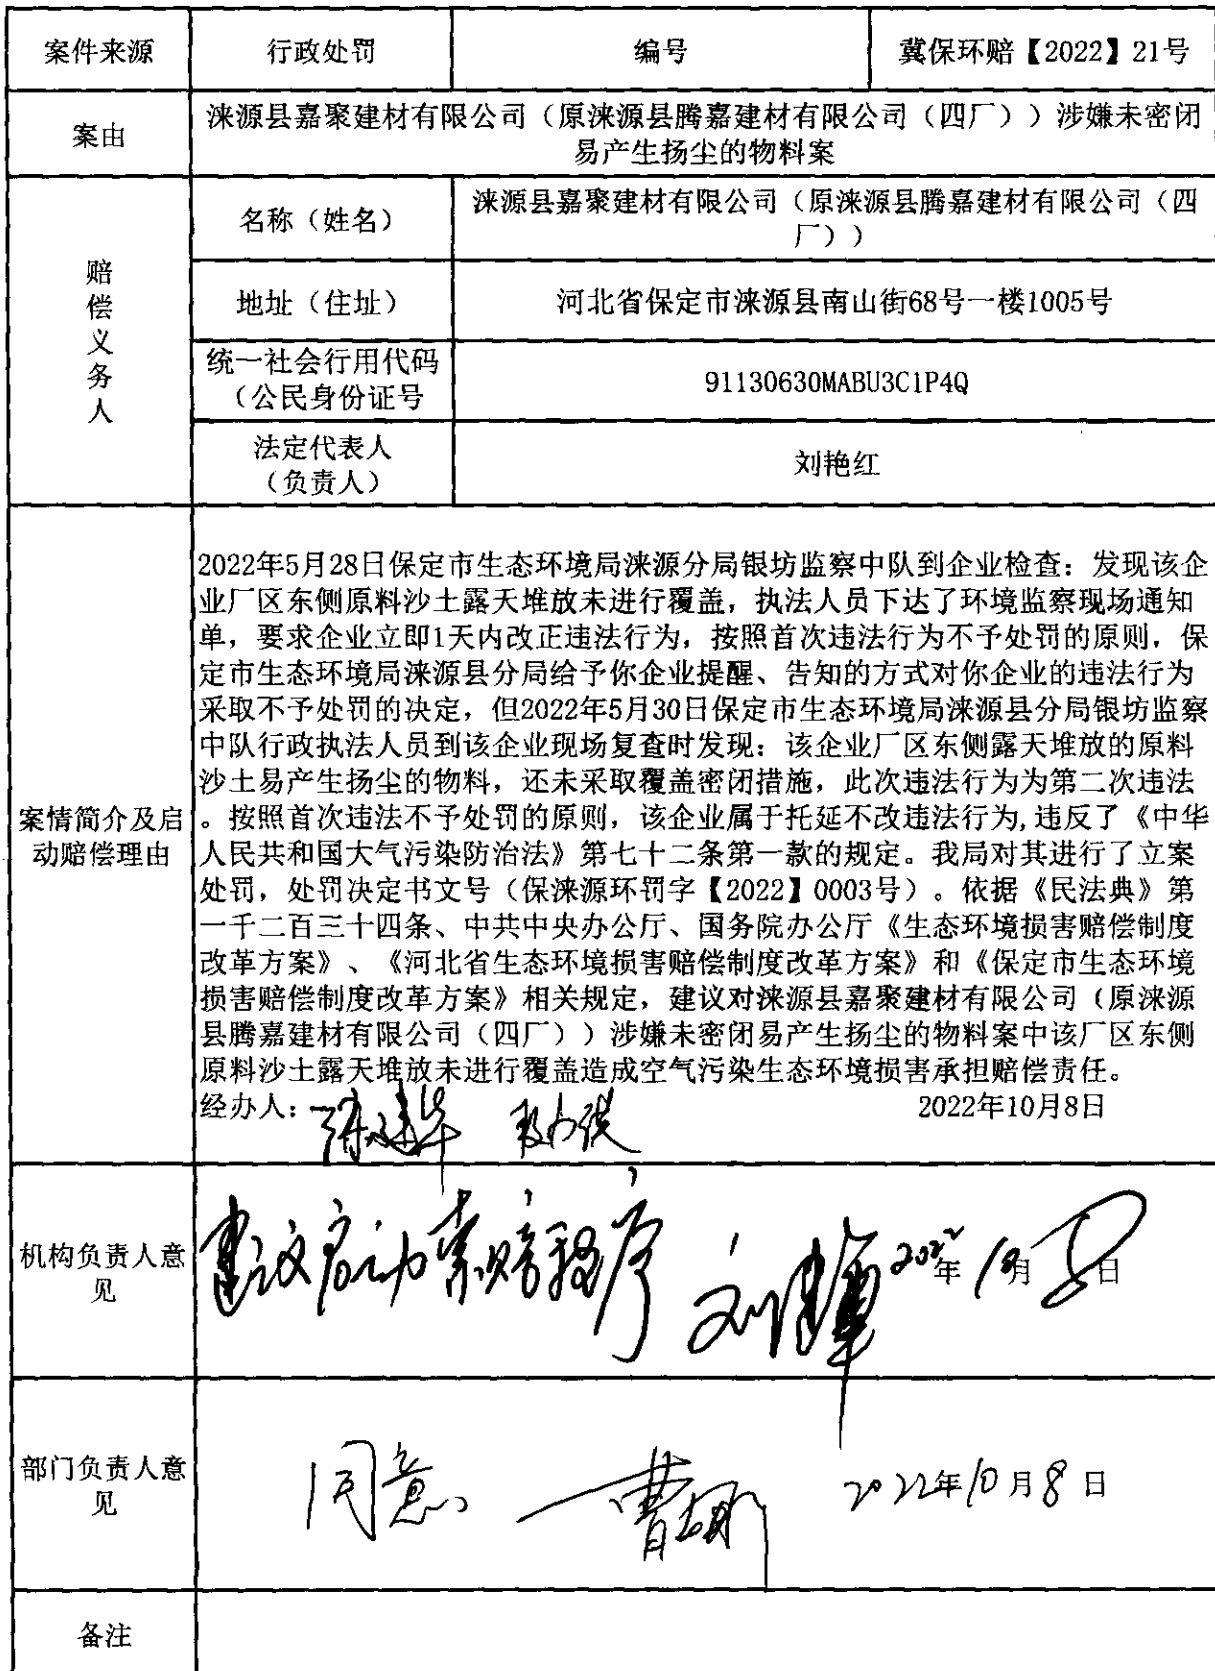 案件来源 行政处罚 编号 冀保环赔【2022】21号
案由
涞源县嘉聚建材有限公司（原涞源县腾嘉建材有限公司（四厂））涉嫌未密闭
易产生扬尘的物料案
赔
偿
义
务
人
名称（姓名）
涞源县嘉聚建材有限公司（原涞源县腾嘉建材有限公司（四
厂））
地址（住址） 河北省保定市涞源县南山街68号一楼1005号
统一社会行用代码
（公民身份证号
91130630MABU3C1P4Q
法定代表人
（负责人）
刘艳红
案情简介及启
动赔偿理由
2022年5月28日保定市生态环境局涞源分局银坊监察中队到企业检查：发现该企
业厂区东侧原料沙土露天堆放未进行覆盖，执法人员下达了环境监察现场通知
单，要求企业立即1天内改正违法行为，按照首次违法行为不予处罚的原则，保
定市生态环境局涞源县分局给予你企业提醒、告知的方式对你企业的违法行为
采取不予处罚的决定，但2022年5月30日保定市生态环境局涞源县分局银坊监察
中队行政执法人员到该企业现场复查时发现：该企业厂区东侧露天堆放的原料
沙土易产生扬尘的物料，还未采取覆盖密闭措施，此次违法行为为第二次违法
。按照首次违法不予处罚的原则，该企业属于托延不改违法行为,违反了《中华
人民共和国大气污染防治法》第七十二条第一款的规定。我局对其进行了立案
处罚，处罚决定书文号（保涞源环罚字【2022】0003号）。依据《民法典》第
一千二百三十四条、中共中央办公厅、国务院办公厅《生态环境损害赔偿制度
改革方案》、《河北省生态环境损害赔偿制度改革方案》和《保定市生态环境
损害赔偿制度改革方案》相关规定，建议对涞源县嘉聚建材有限公司（原涞源
县腾嘉建材有限公司（四厂））涉嫌未密闭易产生扬尘的物料案中该厂区东侧
原料沙土露天堆放未进行覆盖造成空气污染生态环境损害承担赔偿责任。
经办人： 2022年10月8日
机构负责人意
见
建议启动索赔程序 2022年10月8日
部门负责人意
见
同意 2022年10月8日
备注